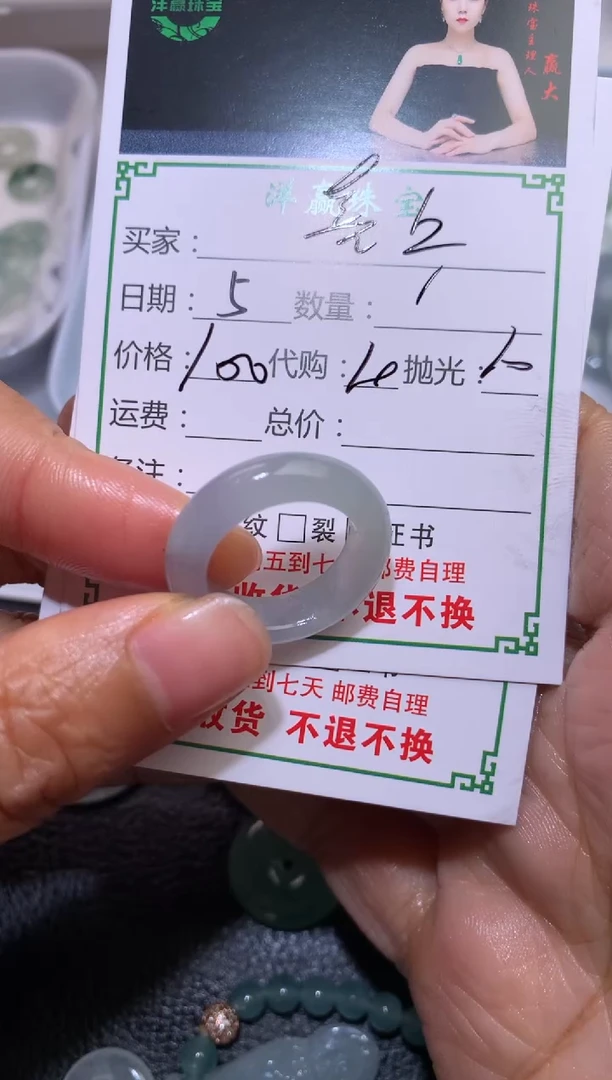 洋赢珠宝
珠宝主理人
赢大
洋赢珠宝
买家：
日期：5 数量：1
价格：100 代购：
抛光：
运费： 总价：
备注：
纹 □ 裂 证书
五到七 邮费自理
收货 不退不换
到七天 邮费自理
收货 不退不换